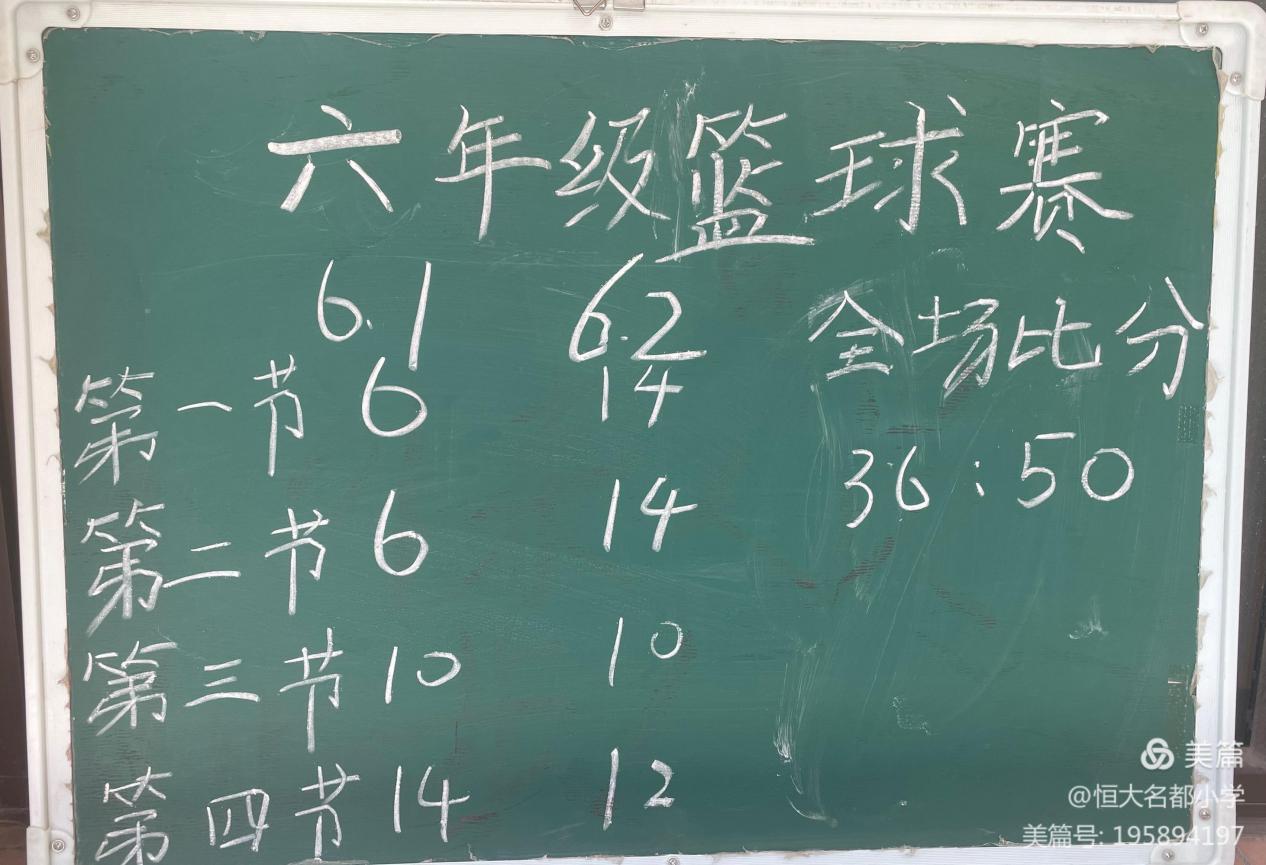 六年级篮球赛
6.1 6.2 全场比分
第一节 6 14
36:50
第二节 6 14
第三节 10 10
第四节 14 12
美篇
@恒大名都小学
美篇号: 195894197